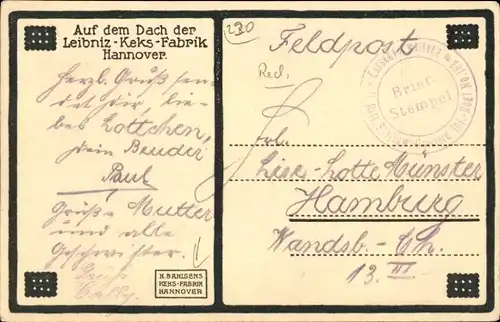 Auf dem Dach der
Leibniz-Keks-Fabrik
Hannover.
Herzl. Gruß sen-
det dir, lie-
bes Lottchen,
dein Bruder
Paul
Grüß Mutter
und alle
Geschwister.
H. BAHLSENS
KEKS-FABRIK
HANNOVER
230
Feldpost
Brief-
Stempel
Frl.
Lise-Lotte Münster
Hamburg
Wandsb.-Ch.
13. III